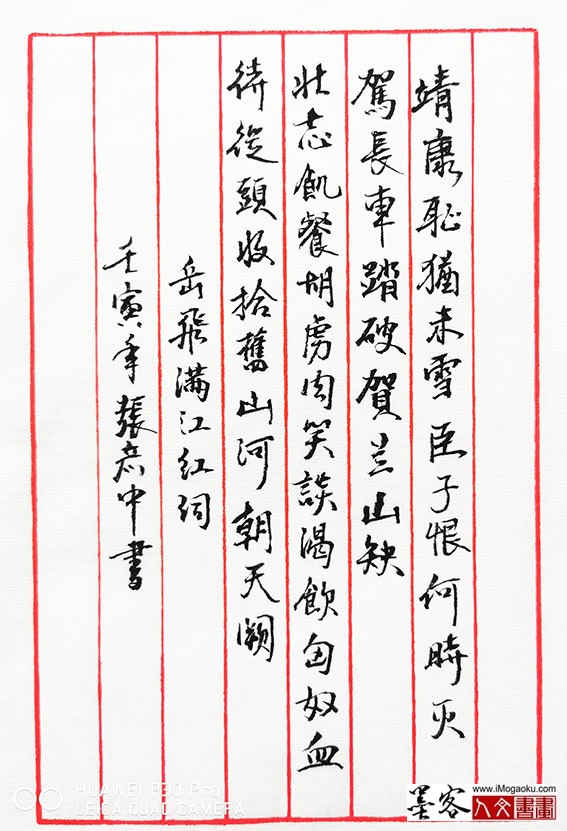 靖康恥猶未雪臣子恨何時灭
駕長車踏破賀兰山缺
壮志飢餐胡虜肉笑談渴飲匈奴血
待從頭收拾舊山河朝天闕
岳飛滿江紅词
壬寅年張志中書
HUAWEI P30 Pro
LEICA QUAD CAMERA
墨客
www.iMogaoku.com
人文書畫